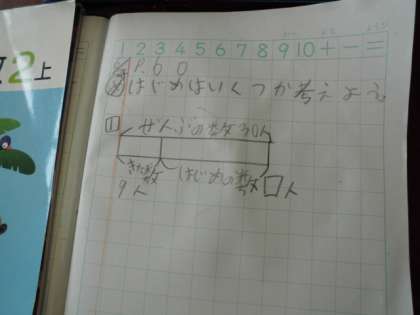 2上
1 2 3 4 5 6 7 8 9 10 + − =
P.60
め はじめはいくつか考えよう
1 ぜんぶの数30人
きた数 はじめの数□人
9人